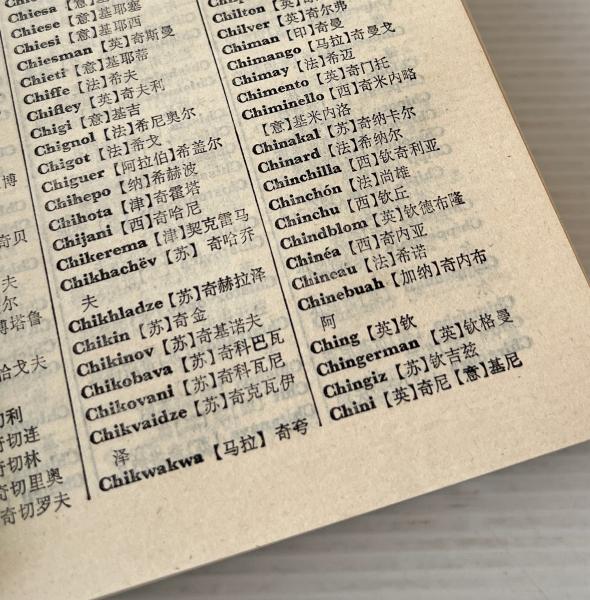 博
奇贝
夫
尔
博塔鲁
哈戈夫
切利
奇切连
奇切林
奇切里奥
奇切罗夫
Chiesa【意】基耶萨
Chiese【意】基耶塞
Chiesi【意】基耶西
Chiesman【英】奇斯曼
Chieti【意】基耶蒂
Chiffe【法】希夫
Chifley【英】奇夫利
Chigi【意】基吉
Chignol【法】希尼奥尔
Chigot【法】希戈
Chiguer【阿拉伯】希盖尔
Chihepo【纳】希赫波
Chihota【津】奇霍塔
Chijani【西】奇哈尼
Chikerema【津】契克雷马
Chikhachëv【苏】奇哈乔
夫
Chikhladze【苏】奇赫拉泽
Chikin【苏】奇金
Chikinov【苏】奇基诺夫
Chikobava【苏】奇科巴瓦
Chikovani【苏】奇科瓦尼
Chikvaidze【苏】奇克瓦伊
泽
Chikwakwa【马拉】奇夸
Chilton【英】
Chilver【英】奇尔弗
Chiman【印】奇曼
Chimango【马拉】奇曼戈
Chimay【法】希迈
Chimento【英】奇门托
Chiminello【西】奇米内略
【意】基米内洛
Chinakal【苏】奇纳卡尔
Chinard【法】希纳尔
Chinchilla【西】钦奇利亚
Chinchón【法】尚雄
Chinchu【西】钦丘
Chindblom【英】钦德布隆
Chinéa【西】奇内亚
Chineau【法】希诺
Chinebuah【加纳】奇内布
阿
Ching【英】钦
Chingerman【英】钦格曼
Chingiz【苏】钦吉兹
Chini【英】奇尼【意】基尼